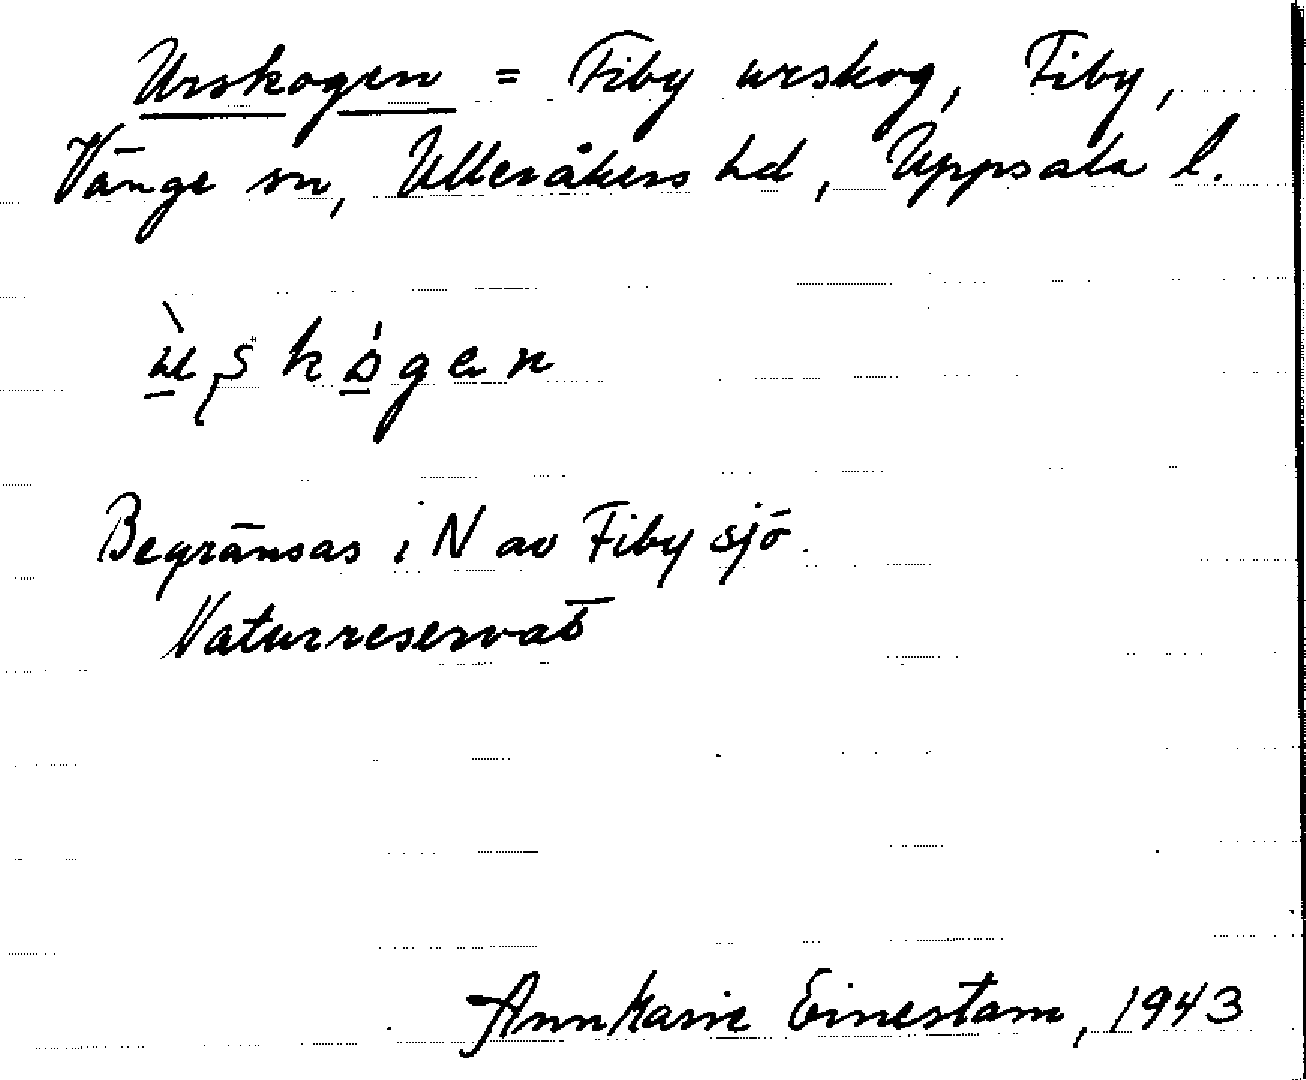 Urskogen = Fiby urskog, Fiby,
Vänge sn, Ulleråkers hd, Uppsala l.
ùşkógen
Begränsas i N av Fiby sjö.
Naturreservat
Ann Marie Einestam, 1943